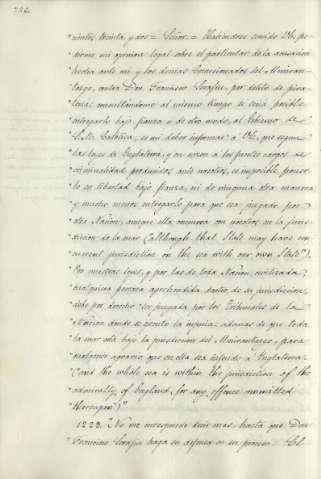 "cientos treinta y dos = Señor = Habiendose servido Vh. pe-
"dirme mi opinion legal sobre el particular de la acusacion
"hecha ante mi y los demas Comisionados del Almiran-
"tazgo, contra Don Francisco Serafin, por delito de pira-
"teria; consultandome al mismo tiempo si seria posible
"entregarlo bajo fianza o de otro modo, al Gobierno de
"S. M. Catolica, es mi deber informar a Vh. que segun
"las leyes de Inglaterra, y en orden a los fuertes cargos de
"criminalidad producidos ante nosotros, es imposible poner-
"lo en libertad bajo fianza, ni de ninguna otra manera
"y mucho menos entregarlo para que sea juzgado por
"otra Nacion, aunque ella concurra con nosotros en la juris-
"diccion de la mar (although that State may have con-
"current jurisdiction on the sea with our own State").
"Por nuestras leyes, y por las de toda Nacion civilizada,
"cualquiera persona aprehendida dentro de su jurisdiccion,
"debe por derecho ser juzgada por los Tribunales de la
"Nacion donde se cometio la injuria: ademas de que toda
"la mar está bajo la jurisdiccion del Almirantazgo, para
"cualquier agravio que en ella sea inferido a Inglaterra.
"(and the whole sea is within the jurisdiction of the
"admiralty of England, for any offence committed
"thereupon)"
1223. No me interpondré pues mas, hasta que Don
"Francisco Serafin haga su defensa en su proceso. El